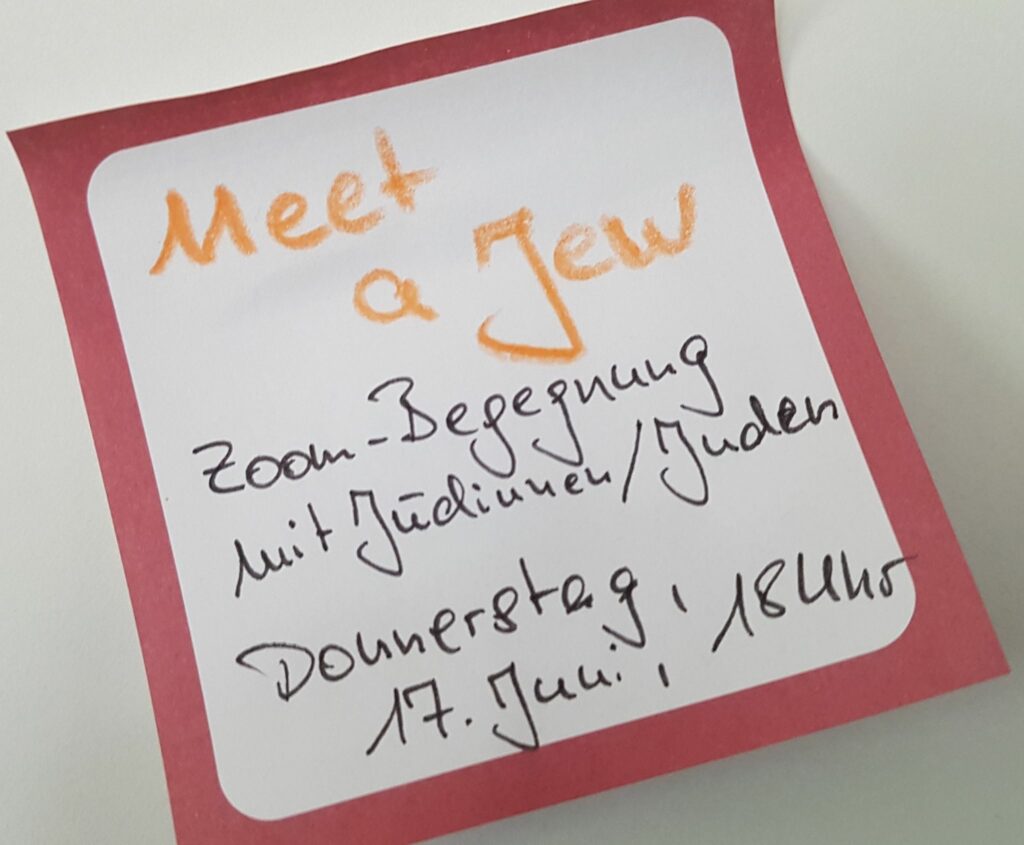 Meet
a Jew
Zoom-Begegnung
mit Jüdinnen/Juden
Donnerstag,
17. Juni, 18 Uhr